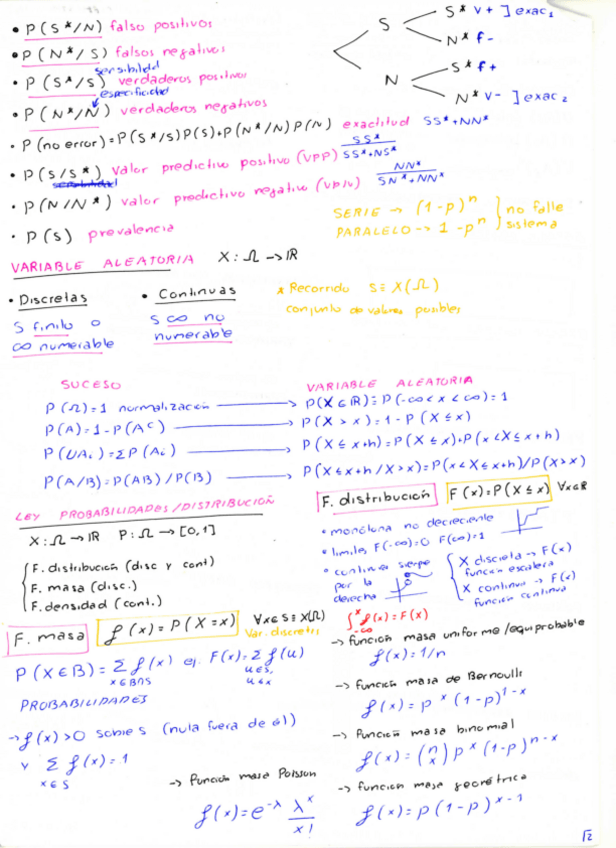 • P(S*/N) falso positivos
• P(N*/S) falsos negativos
sensibilidad
• P(S*/S) verdaderos positivos
especificidad
• P(N*/N) verdaderos negativos
• P(no error)=P(S*/S)P(S)+P(N*/N)P(N) exactitud SS*+NN*
• P(S/S*) valor predictivo positivo (VPP) SS* / SS*+NS*
• P(N/N*) valor predictivo negativo (VPN) NN* / SN*+NN*
• P(S) prevalencia
S
S* V+ ] exac₁
N* f-
N
S* f+
N* V- ] exac₂
SERIE → (1-p)ⁿ
PARALELO → 1-pⁿ
} no falle sistema
VARIABLE ALEATORIA X: Ω → IR
• Discretas
S finito o
∞ numerable
• Continuas
S ∞ no
numerable
* Recorrido S≡X(Ω)
conjunto de valores posibles
SUCESO
VARIABLE ALEATORIA
P(Ω)=1 normalización → P(X∈IR)≡P(-∞<x<∞)=1
P(A)=1-P(Aᶜ) → P(X>x)=1-P(X≤x)
P(UAi)=ΣP(Ai) → P(X≤x+h)=P(X≤x)+P(x<X≤x+h)
P(A/B)=P(AB)/P(B) → P(X≤x+h/X>x)=P(x<X≤x+h)/P(X>x)
LEY PROBABILIDADES/DISTRIBUCIÓN
X: Ω → IR P: Ω → [0,1]
{ F. distribución (disc y cont)
F. masa (disc.)
F. densidad (cont.)
F. distribución F(x)=P(X≤x) ∀x∈R
• monótona no decreciente
• limites F(-∞)=0 F(∞)=1
• continua siempre
por la
derecha
{ X discreta → F(x)
función escalera
X continua → F(x)
función continua
∫₋∞ˣ f(x)=F(x)
F. masa f(x)=P(X=x) ∀x∈S≡X(Ω)
Var. discretas
P(X∈B)=Σ f(x) ej. F(x)=Σ f(u)
x∈B∩S u∈S, u≤x
PROBABILIDADES
→ f(x)>0 sobre S (nula fuera de él)
y Σ f(x)=1
x∈S
→ función masa Poisson
f(x)=e^-λ λˣ / x!
→ función masa uniforme/equiprobable
f(x)=1/n
→ función masa de Bernoulli
f(x)=pˣ(1-p)¹⁻ˣ
→ función masa binomial
f(x)=(n x)pˣ(1-p)ⁿ⁻ˣ
→ función masa geométrica
f(x)=p(1-p)ˣ⁻¹